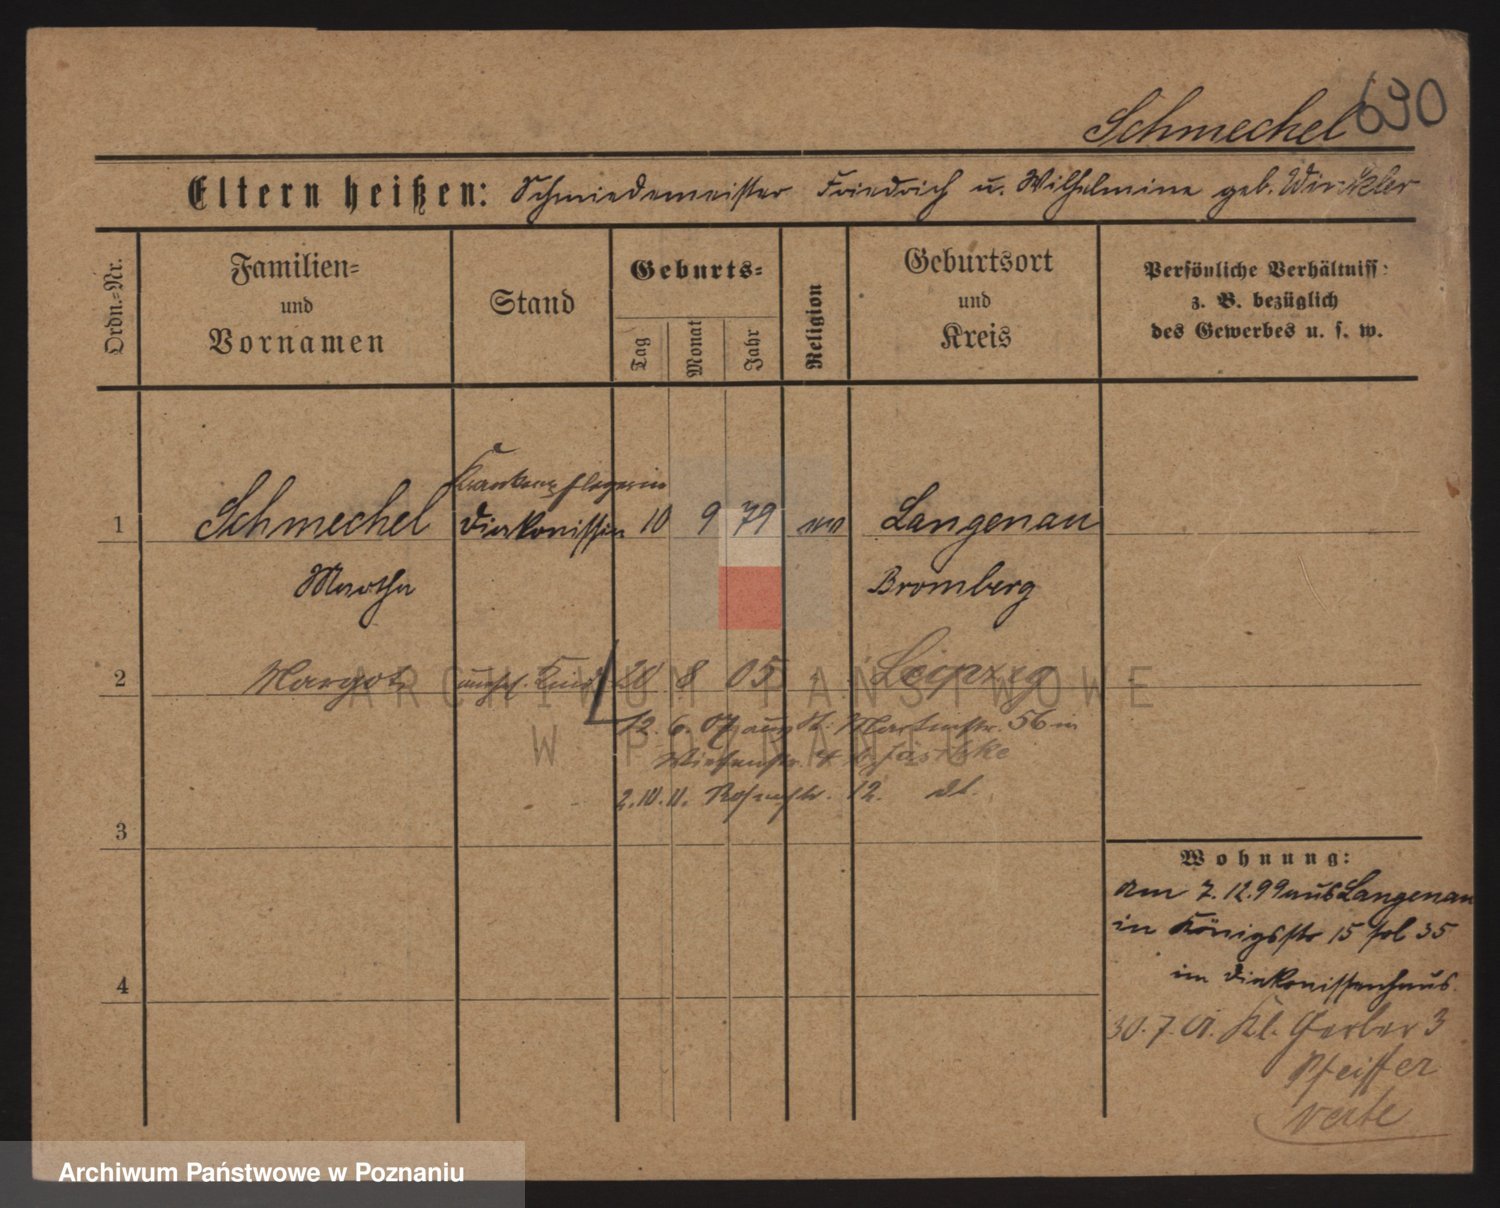 Schmechel 690
Eltern heißen: Schmiedemeister Friedrich u. Wilhelmine geb. Winkler
Ordn.-Nr.
Familien-
und
Vornamen
Stand
Geburts-
Tag
Monat
Jahr
Religion
Geburtsort
und
Kreis
Persönliche Verhältniss:
z. B. bezüglich
des Gewerbes u. s. w.
Krankenpflegerin
1 Schmechel Diakonissin 10 9 79 ev Langenau
Martha Bromberg
2 Margot unehel. Kind 20 8 05 Leipzig
12. 6. 07 aus Martinstr. 56 in
Wiesenstr. 4
2. 10. 11. Rosenstr. 12.
3
4
Wohnung:
Am 7. 12. 99 aus Langenau
in Königsstr 15 fol 35
im Diakonissenhaus.
30. 7. 01. Kl. Gerber 3
Pfeiffer
verte
ARCHIWUM PAŃSTWOWE
W POZNANIU
Archiwum Państwowe w Poznaniu